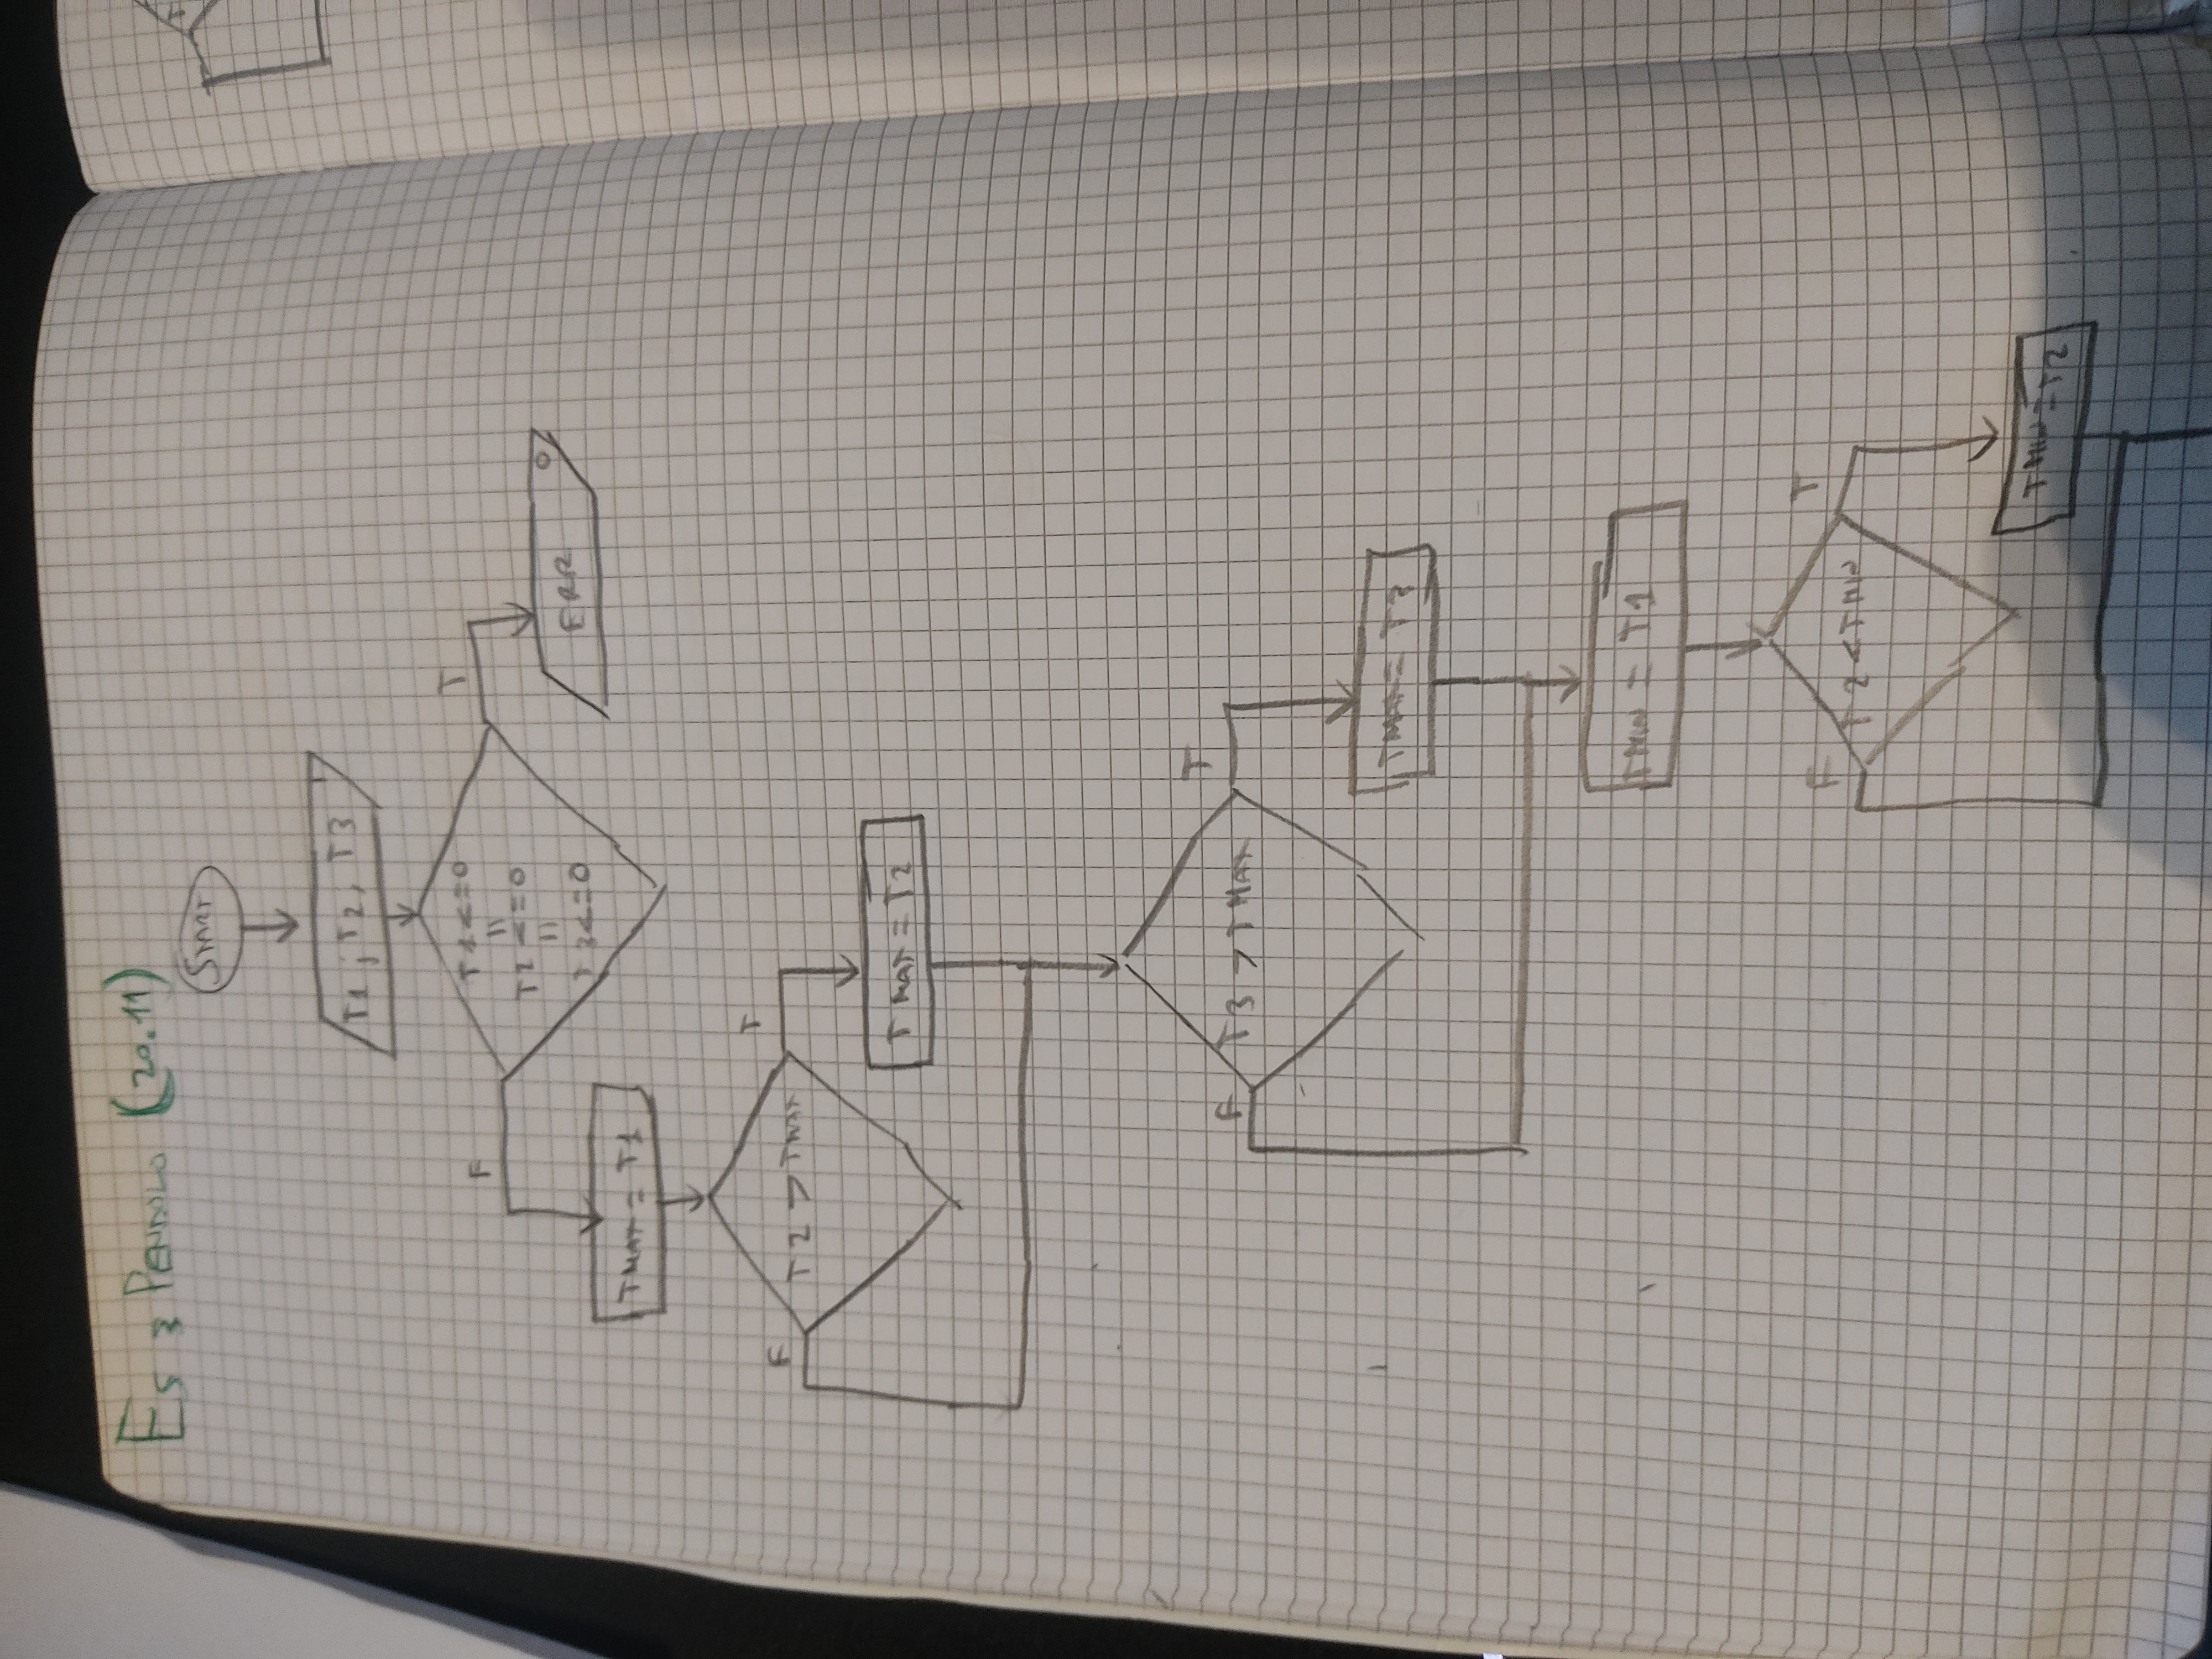 Es 3 PENDOLO (20.11)
START
T1 ; T2, T3
I
F
T
T1 <= 0
||
T2 <= 0
||
T3 <= 0
ERR O
TMAX = T1
F
T
T2 > TMAX
TMAX = T2
F
T
T3 > TMAX
TMAX = T3
TMIN = T1
F
T
T2 < TMIN
TMIN = T2
T